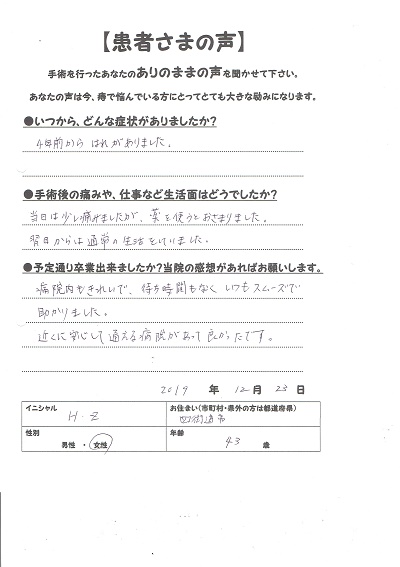 【患者さまの声】
手術を行ったあなたのありのままの声を聞かせて下さい。
あなたの声は今、痔で悩んでいる方にとってとても大きな励みになります。
●いつから、どんな症状がありましたか?
4年前から はれがありました。
●手術後の痛みや、仕事など生活面はどうでしたか?
当日は少し痛みましたが、薬を使うとおさまりました。
翌日からは通常の生活をしていました。
●予定通り卒業出来ましたか?当院の感想があればお願いします。
病院内もきれいで、待ち時間もなく いつもスムーズで
助かりました。
近くに安心して通える病院があって良かったです。
2019 年 12月 23日
イニシャル
H・Z
お住まい(市町村・県外の方は都道府県)
四街道市
性別
男性・女性
年齢
43 歳